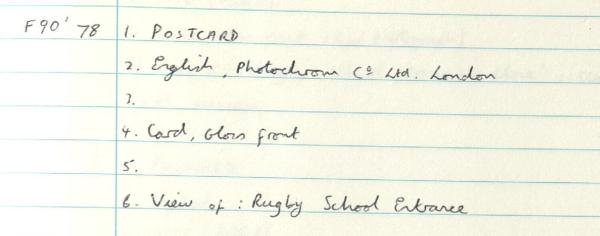 F90' 78 1. POSTCARD
2. English, Photochrom Cº Ltd. London
3.
4. Card, Gloss front
5.
6. View of : Rugby School Entrance